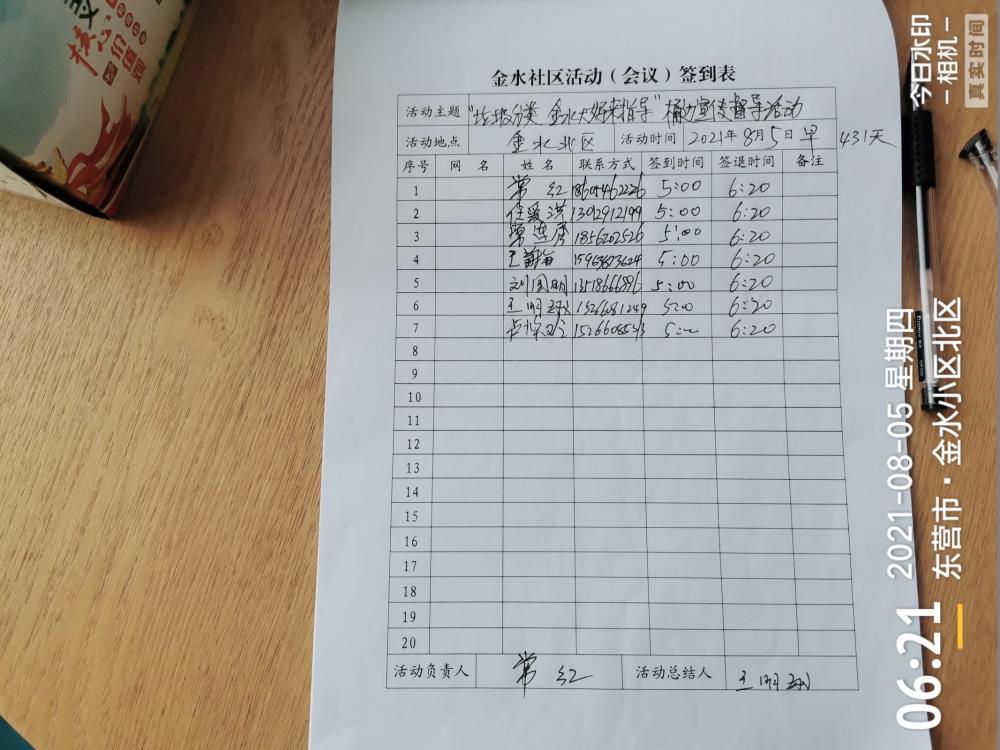 金水社区活动（会议）签到表
活动主题 "垃圾分类 金水大姨来指导" 桶边宣传督导活动
活动地点 金水北区 活动时间 2021年8月5日 早 431天
序号 网 名 姓 名 联系方式 签到时间 签退时间 备注
1 常 红 18605462226 5:00 6:20
2 任爱洪 13092912199 5:00 6:20
3 秀 1856202526 5:00 6:20
4 王 15963873624 5:00 6:20
5 刘国明 13518666896 5:00 6:20
6 王明 15266081249 5:00 6:20
7 5:00 6:20
8
9
10
11
12
13
14
15
16
17
18
19
20
活动负责人 常 红 活动总结人 王明
今日水印
相机
真实时间
06:21
2021-08-05 星期四
东营市·金水小区北区
核心价值观